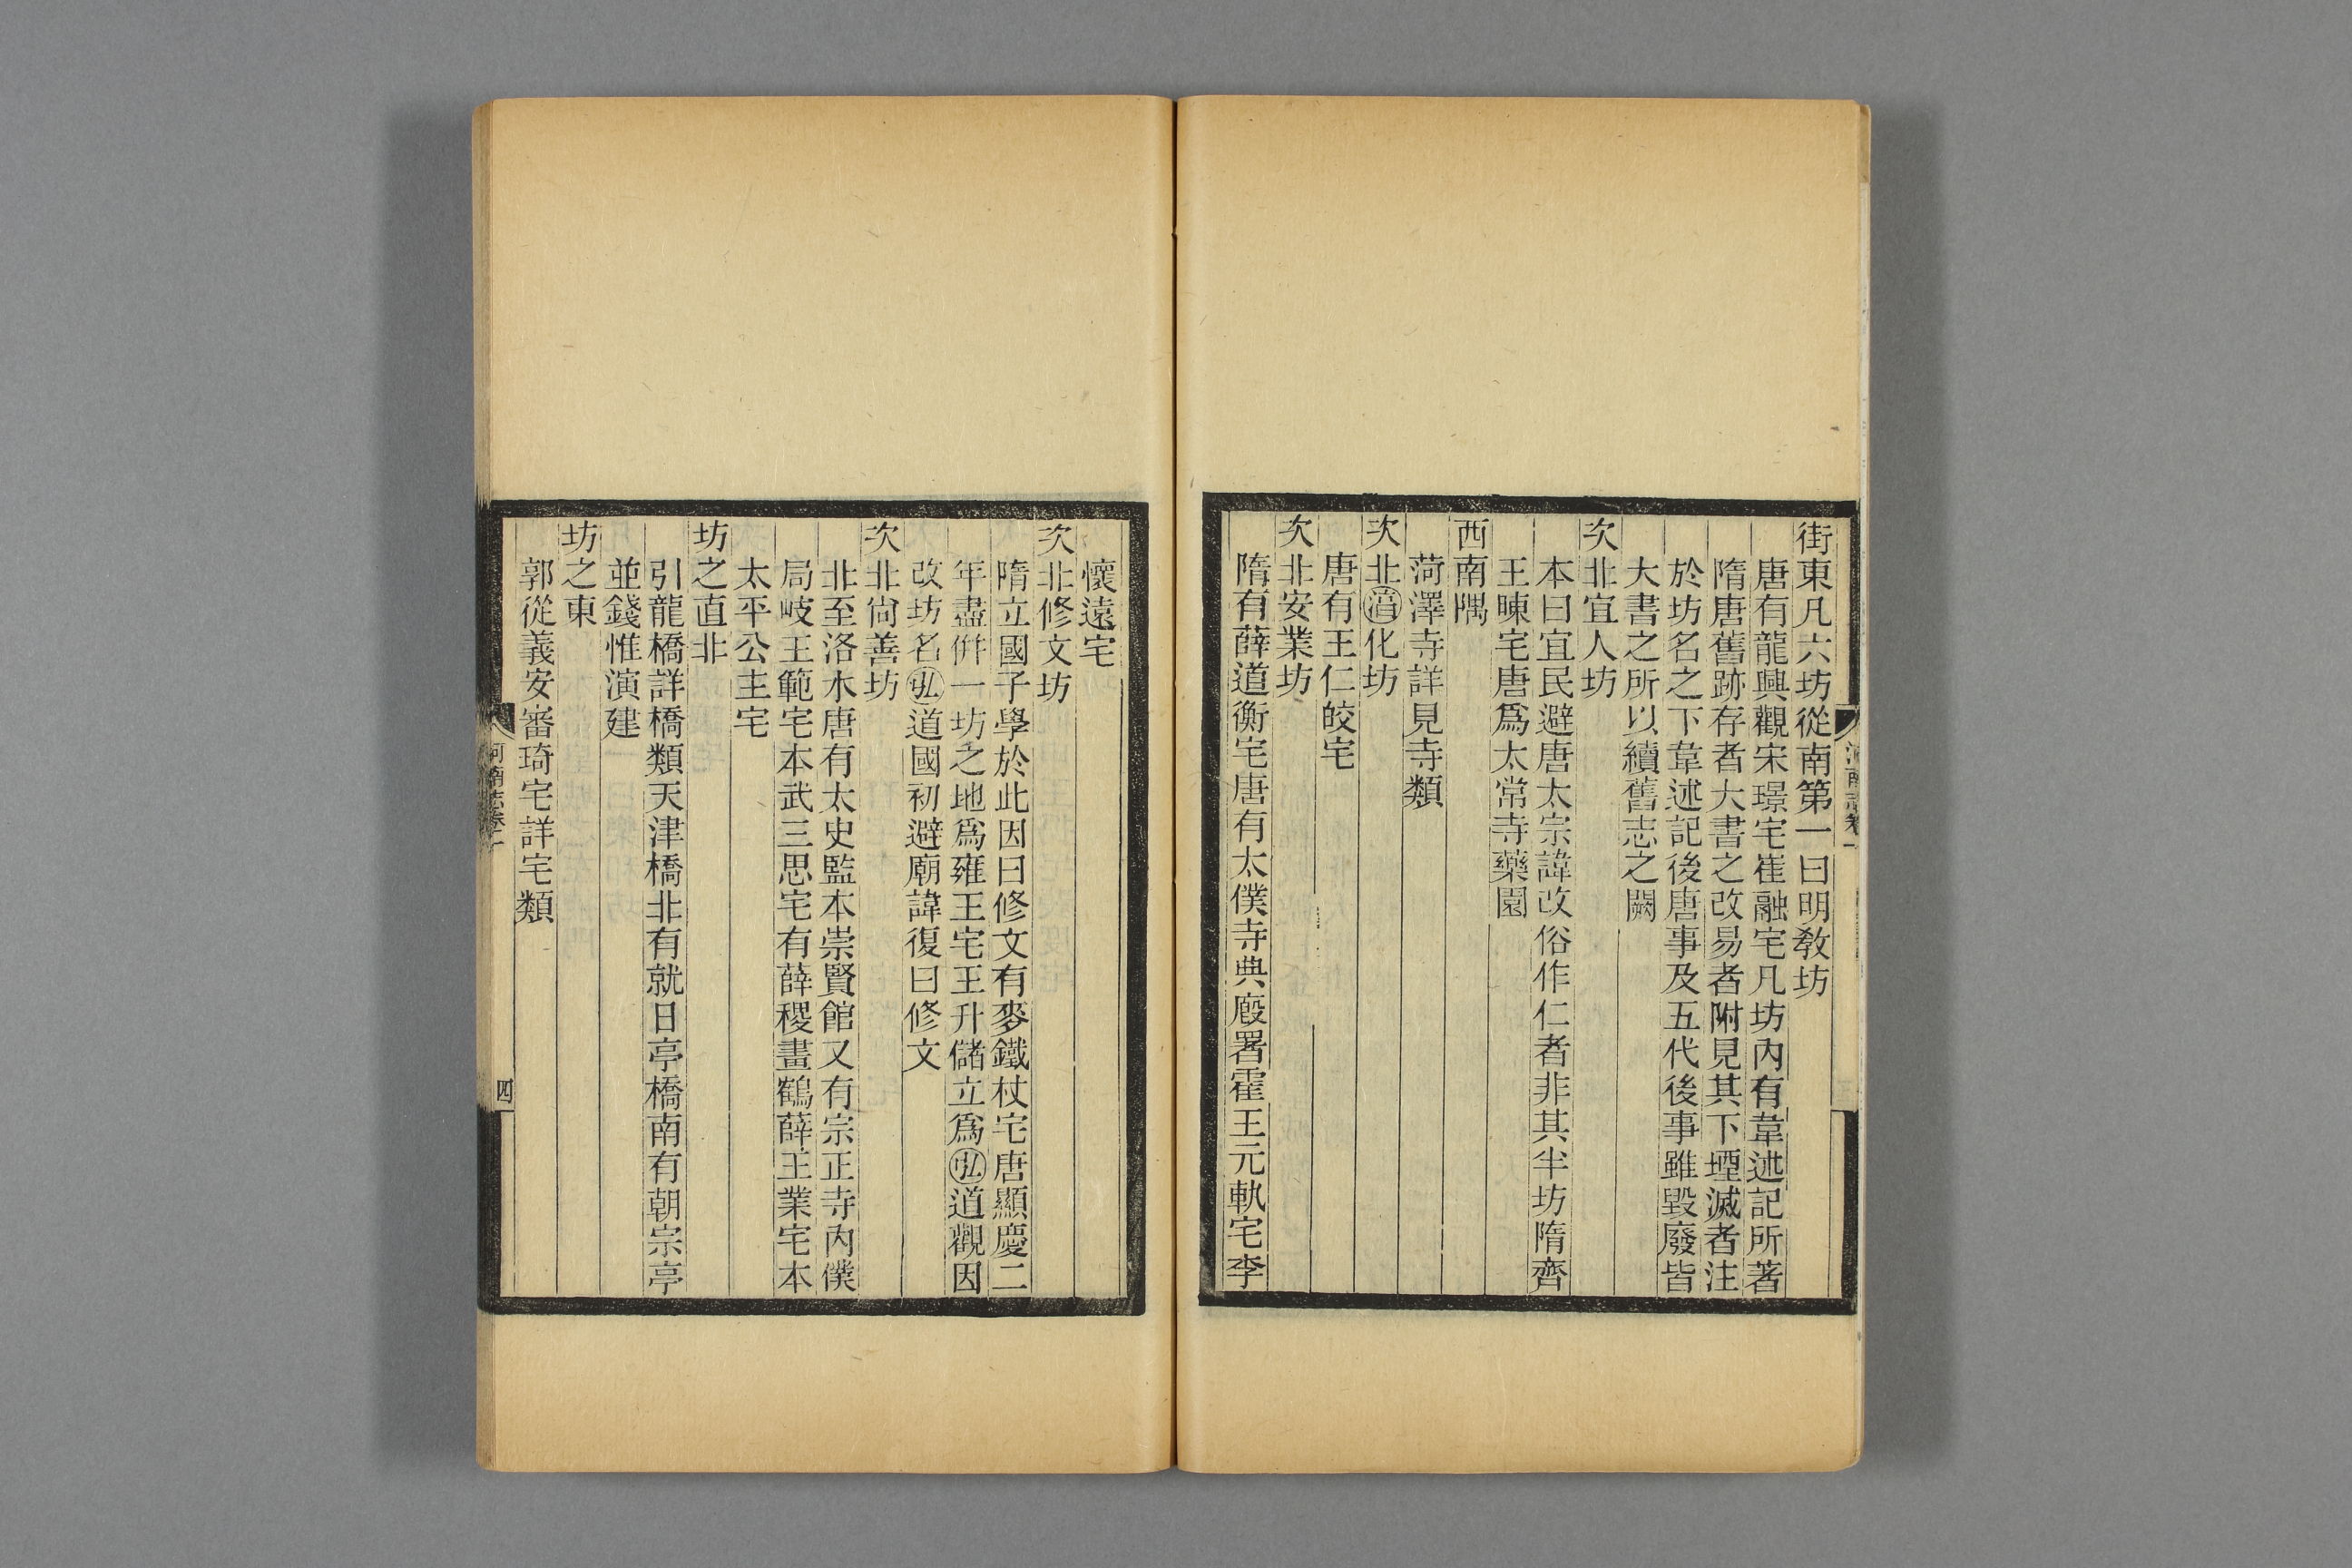 街東凡六坊從南第一曰明教坊
唐有龍興觀宋璟宅崔融宅凡坊內有韋述記所著
隋唐舊跡存者大書之改易者附見其下堙滅者注
於坊名之下韋述記後唐事及五代後事雖毀廢皆
大書之所以續舊志之闕
次北宜人坊
本曰宜民避唐太宗諱改俗作仁者非其半坊隋齊
王暕宅唐爲太常寺藥園
西南隅
菏澤寺詳見寺類
次北淯化坊
唐有王仁皎宅
次北安業坊
隋有薛道衡宅唐有太僕寺典廄署霍王元軌宅李
懷遠宅
次北修文坊
隋立國子學於此因曰修文有麥鐵杖宅唐顯慶二
年盡併一坊之地爲雍王宅王升儲立爲弘道觀因
改坊名弘道國初避廟諱復曰修文
次北尙善坊
北至洛水唐有太史監本崇賢館又有宗正寺內僕
局岐王範宅本武三思宅有薛稷畫鶴薛王業宅本
太平公主宅
坊之直北
引龍橋詳橋類天津橋北有就日亭橋南有朝宗亭
並錢惟演建
坊之東
郭從義安審琦宅詳宅類
河南志卷一
四